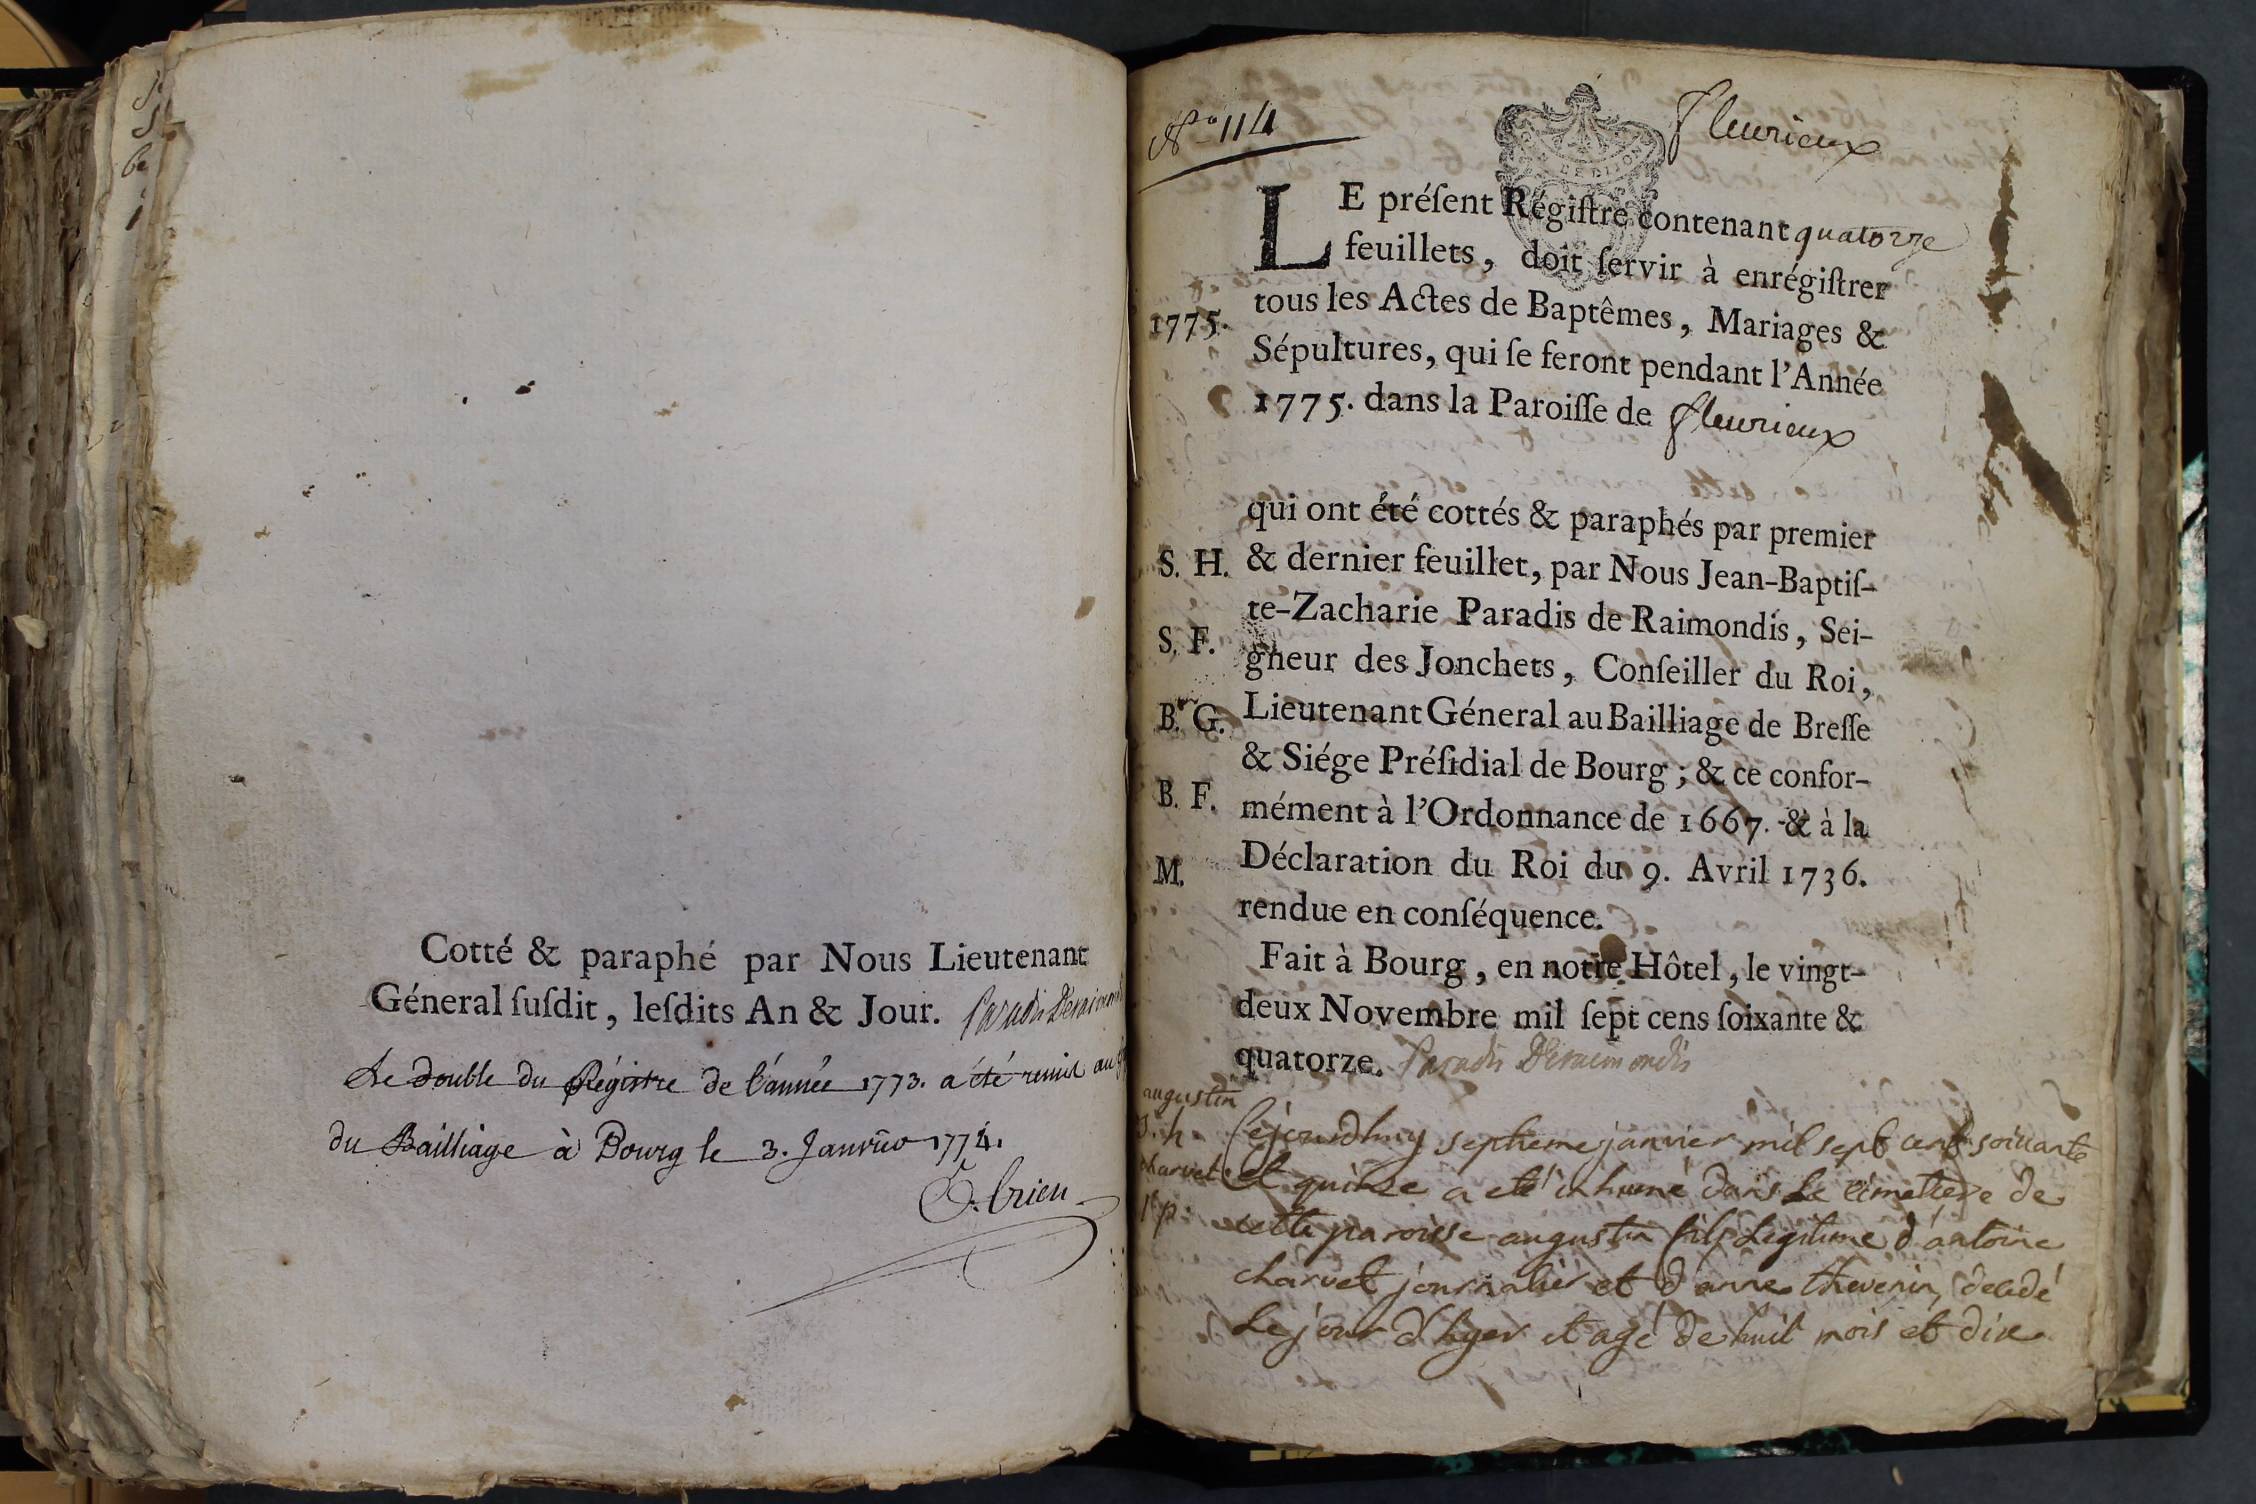 Cotté & paraphé par Nous Lieutenant
Géneral ſuſdit, leſdits An & Jour. Paradis Deraimondi
Le double du Régistre de l'année 1773. a été remis au
du Bailliage à Bourg le 3. Janvier 1774.
N° 114
Fleurieux
LE préſent Régiſtre contenant quatorze
feuillets, doit ſervir à enrégiſtrer
tous les Actes de Baptêmes, Mariages &
1775.
Sépultures, qui ſe feront pendant l'Année
1775. dans la Paroiſſe de fleurieux
qui ont été cottés & paraphés par premier
S. H.
& dernier feuillet, par Nous Jean-Baptiſ-
te-Zacharie Paradis de Raimondis, Sei-
S. F.
gneur des Jonchets, Conſeiller du Roi,
B. G.
Lieutenant Géneral au Bailliage de Breſſe
& Siége Préſidial de Bourg; & ce confor-
B. F.
mément à l'Ordonnance de 1667. & à la
M.
Déclaration du Roi du 9. Avril 1736.
rendue en conſéquence.
Fait à Bourg, en notre Hôtel, le vingt-
deux Novembre mil ſept cens ſoixante &
quatorze. Paradis Deraimondis
augustin
S. h.
charvet
1 p.
Cejourdhuy septieme janvier mil sept cent soixante
et quinze a eté inhumé dans Le cimettere de
cette paroisse augustin fils Legitime d'antoine
charvet journalier et d'anne thevenin, decedé
Le jour d'hyer et agé de huit mois et dix